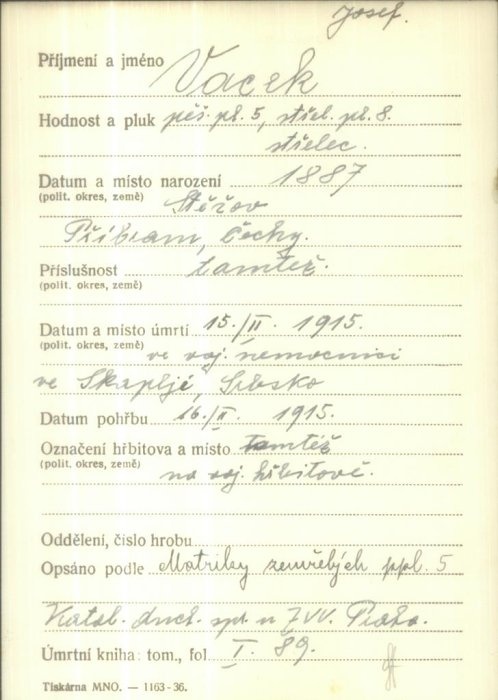 Josef.
Příjmení a jméno Vacek
Hodnost a pluk pěš. pl. 5, střel. pl. 8.
střelec.
Datum a místo narození 1887
(polit. okres, země) Stěžov
Příbram, Čechy.
Příslušnost tamtéž.
(polit. okres, země)
Datum a místo úmrtí 15./II. 1915.
(polit. okres, země) ve voj. nemocnici
ve Skoplje, Srbsko
Datum pohřbu 16./II. 1915.
Označení hřbitova a místo tamtéž
(polit. okres, země) na voj. hřbitově.
Oddělení, číslo hrobu
Opsáno podle Matriky zemřelých ppl. 5
Katol. duch. spr. u ZVV. Praha.
Úmrtní kniha: tom., fol. I. 89.
Tiskárna MNO. — 1163-36.